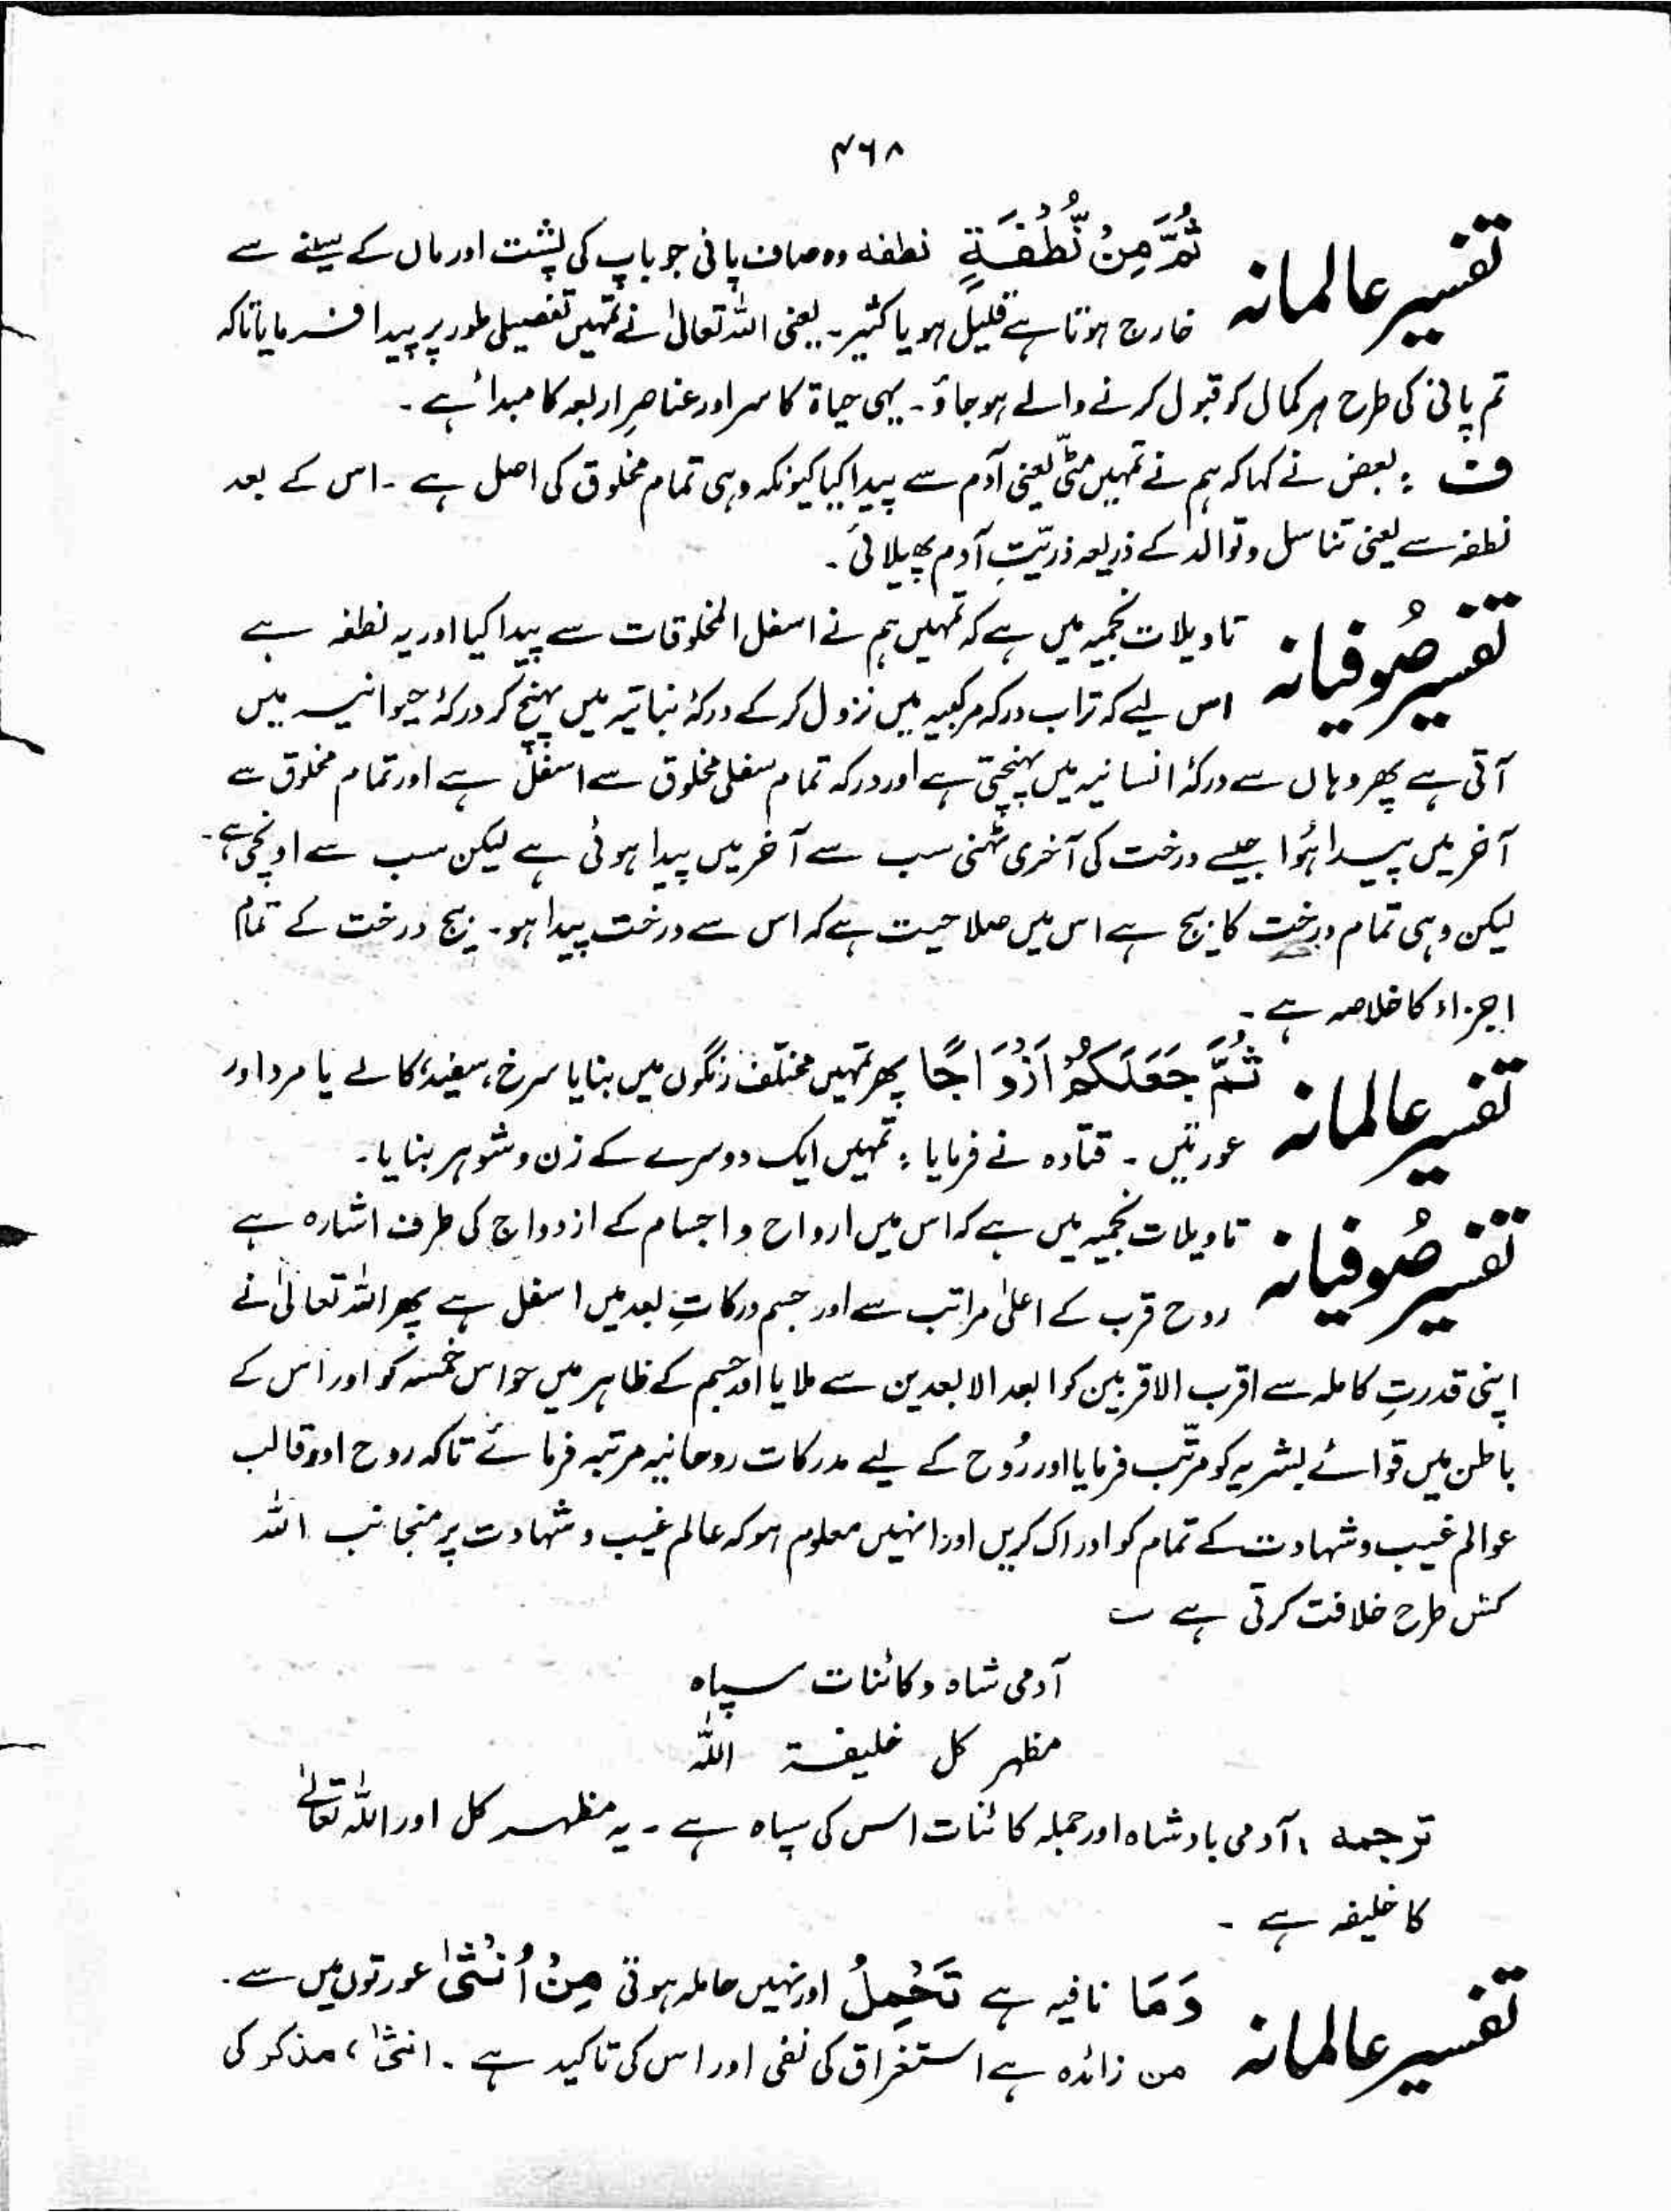 ۴۶۸
تفسیر عالمانہ ثُمَّ مِنْ نُّطْفَةٍ نطفہ وہ صاف پانی جو باپ کی پشت اور ماں کے سینے سے
خارج ہوتا ہے قلیل ہو یا کثیر۔ یعنی اللہ تعالیٰ نے تمہیں تفصیلی طور پر پیدا فرمایا تاکہ
تم پانی کی طرح ہر کمال کو قبول کرنے والے ہوجاؤ۔ یہی حیاۃ کا سر اور عناصرِ اربعہ کا مبدأ ہے۔
ف : بعض نے کہا کہ ہم نے تمہیں مٹی یعنی آدم سے پیدا کیا کیونکہ وہی تمام مخلوق کی اصل ہے۔ اس کے بعد
نطفہ سے یعنی تناسل و توالد کے ذریعہ ذریّتِ آدم پھیلائی۔
تفسیر صُوفیانہ تاویلات نجمیہ میں ہے کہ تمہیں ہم نے اسفل المخلوقات سے پیدا کیا اور یہ نطفہ ہے
اس لیے کہ تراب درکہ مرکبیہ میں نزول کرکے درکۂ نباتیہ میں پہنچ کر درکۂ حیوانیہ میں
آتی ہے پھر وہاں سے درکۂ انسانیہ میں پہنچتی ہے اور درکہ تمام سفلی مخلوق سے اسفل ہے اور تمام مخلوق سے
آخر میں پیدا ہُوا جیسے درخت کی آخری ٹہنی سب سے آخر میں پیدا ہوئی ہے لیکن سب سے اونچی ہے۔
لیکن وہی تمام درخت کا بیج ہے اس میں صلاحیت ہے کہ اس سے درخت پیدا ہو۔ بیج درخت کے تمام
اجزاء کا خلاصہ ہے۔
تفسیر عالمانہ ثُمَّ جَعَلَكُمْ اَزْوَاجًا پھر تمہیں مختلف رنگوں میں بنایا سرخ، سفید، کالے یا مرد اور
عورتیں۔ قتادہ نے فرمایا : تمہیں ایک دوسرے کے زن و شوہر بنایا۔
تفسیر صُوفیانہ تاویلات نجمیہ میں ہے کہ اس میں ارواح و اجسام کے ازدواج کی طرف اشارہ ہے
روح قرب کے اعلیٰ مراتب سے اور جسم درکاتِ بعد میں اسفل ہے پھر اللہ تعالیٰ نے
اپنی قدرتِ کاملہ سے اقرب الاقربین کو ابعد الابعدین سے ملایا اور جسم کے ظاہر میں حواس خمسہ کو اور اس کے
باطن میں قوائے بشریہ کو مرتّب فرمایا اور رُوح کے لیے مدرکات روحانیہ مرتبہ فرمائے تاکہ روح اور قالب
عوالم غیب و شہادت کے تمام کو ادراک کریں اور انہیں معلوم ہو کہ عالم غیب و شہادت پر منجانب اللہ
کس طرح خلافت کرتی ہے ؎
آدمی شاہ و کائنات سپاہ
مظہر کل خلیفۃ اللہ
ترجمہ : آدمی بادشاہ اور جملہ کائنات اس کی سپاہ ہے۔ یہ مظہر کل اور اللہ تعالیٰ
کا خلیفہ ہے۔
تفسیر عالمانہ وَمَا نافیہ ہے تَحْمِلُ اور نہیں حاملہ ہوتی مِنْ اُنْثٰى عورتوں میں سے۔
من زائدہ ہے استغراق کی نفی اور اس کی تاکید ہے۔ انثیٰ، مذکر کی